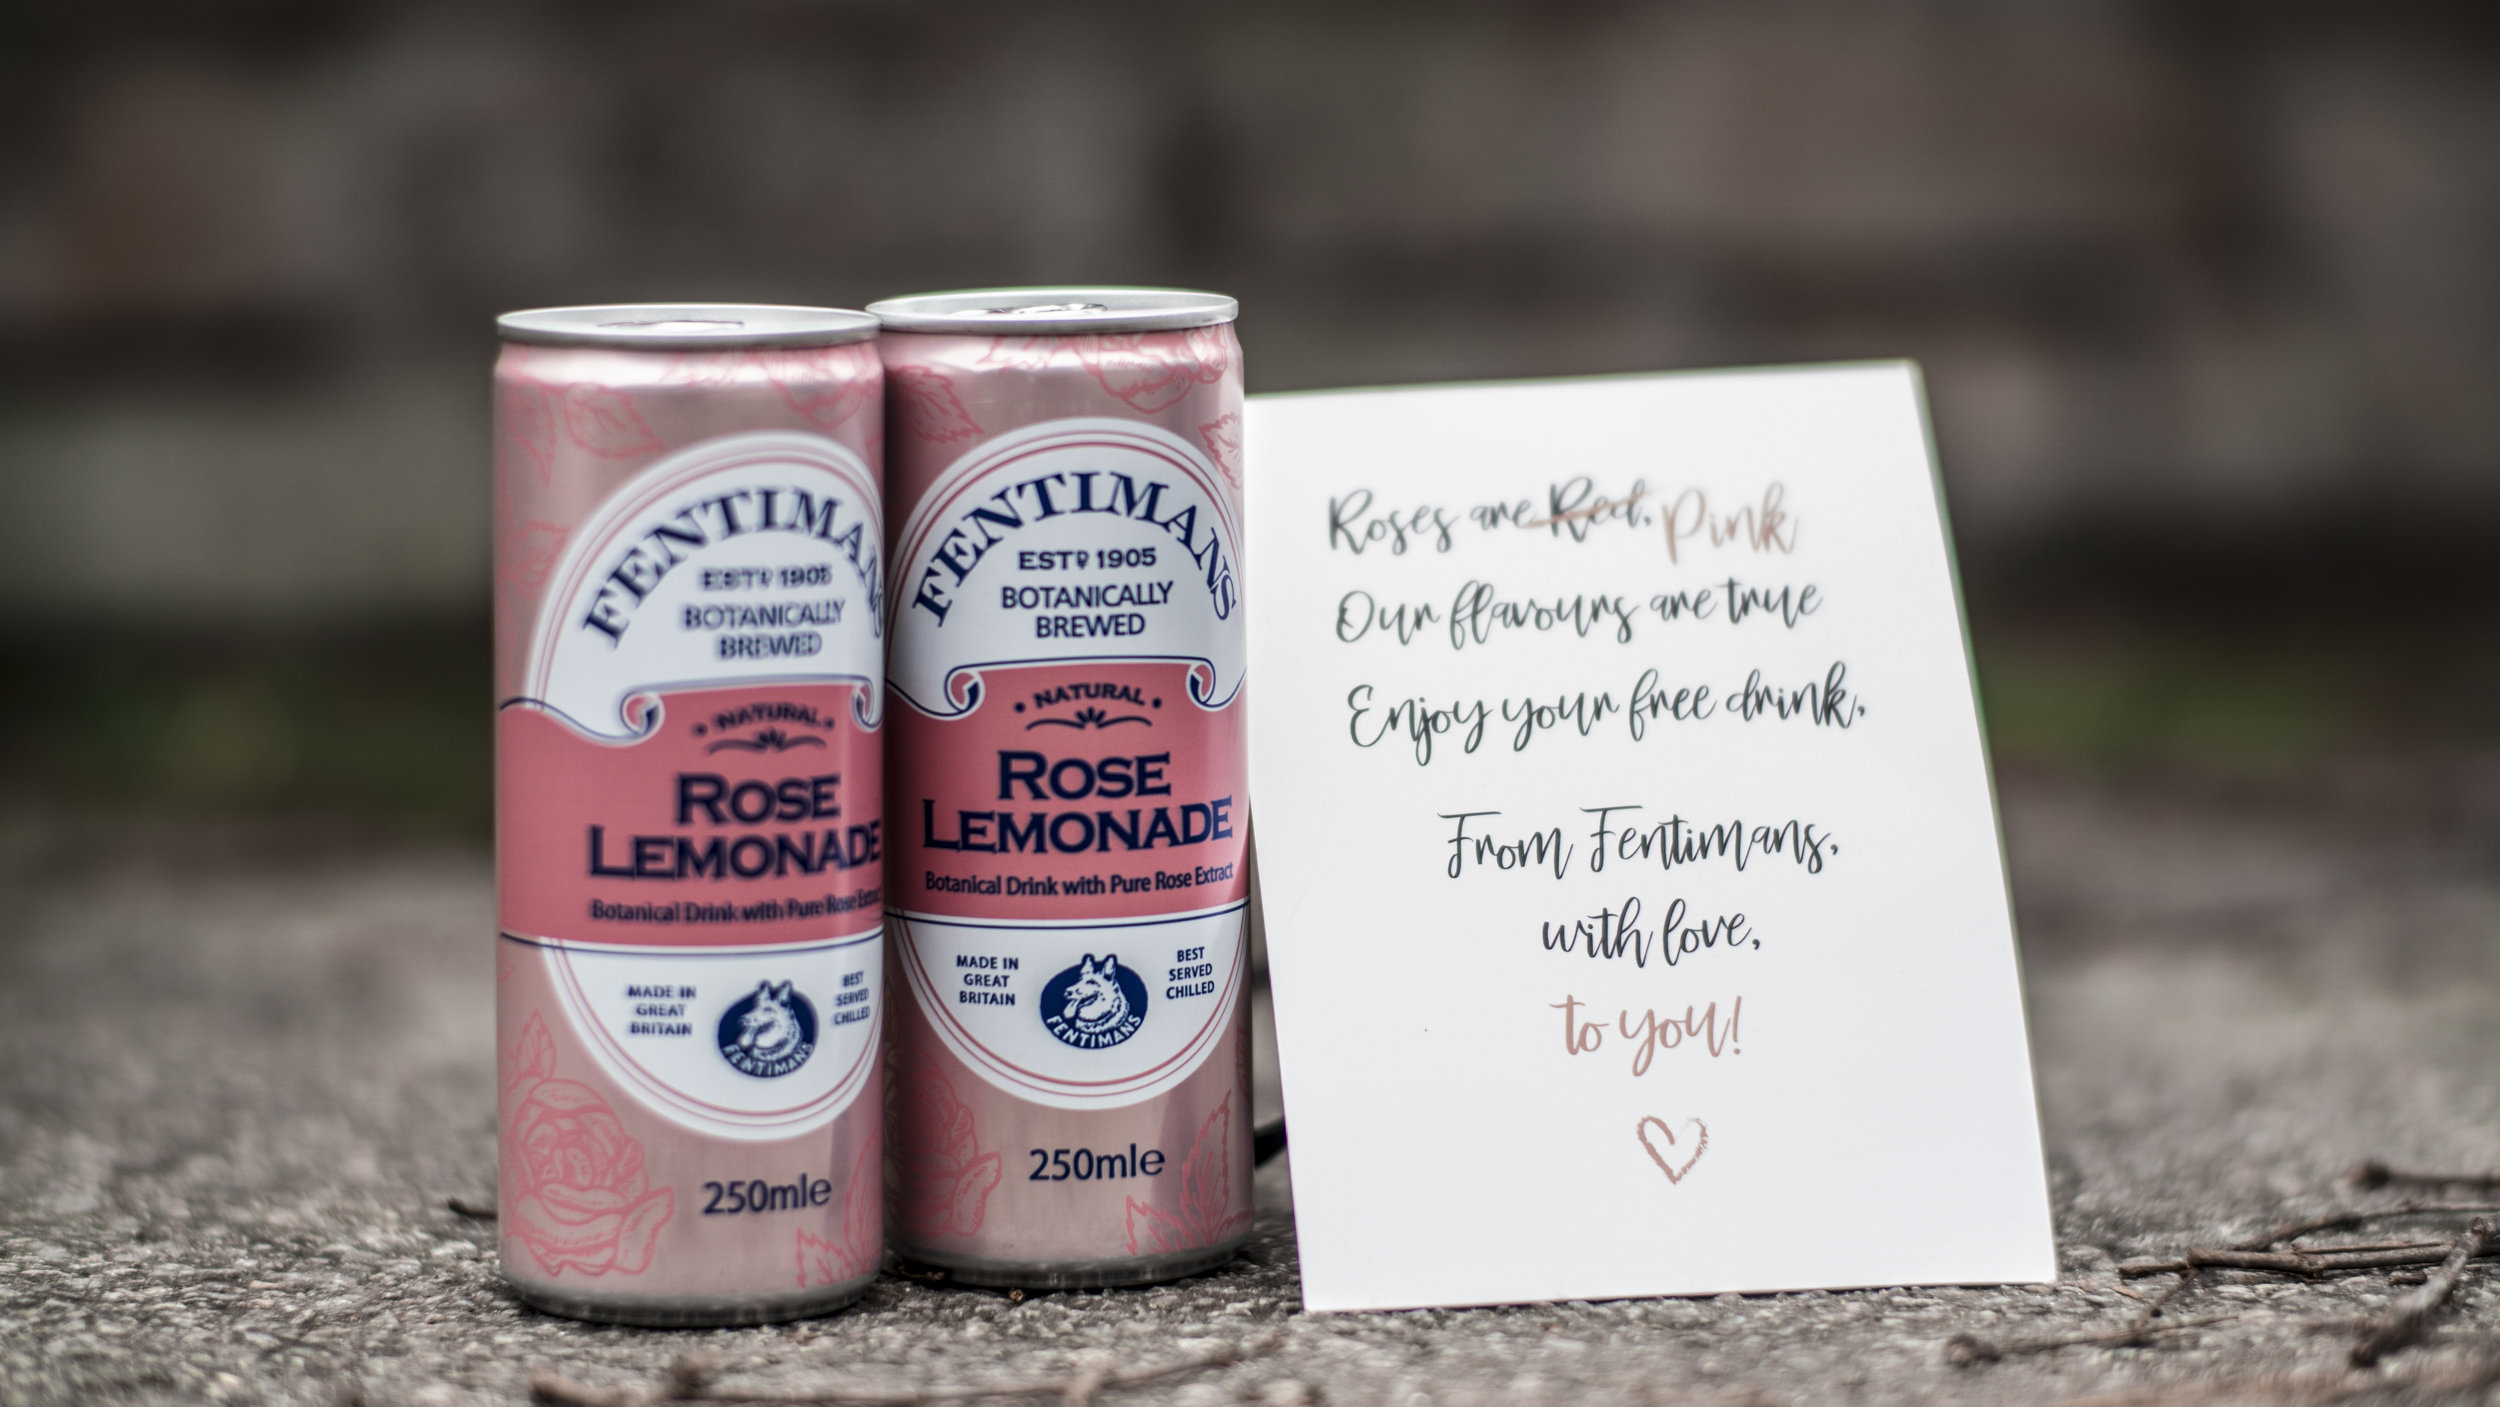 FENTIMANS
ESTD 1905
BOTANICALLY
BREWED
• NATURAL •
ROSE
LEMONADE
Botanical Drink with Pure Rose Extract
MADE IN
GREAT
BRITAIN
FENTIMANS
BEST
SERVED
CHILLED
250mle
FENTIMANS
ESTD 1905
BOTANICALLY
BREWED
• NATURAL •
ROSE
LEMONADE
Botanical Drink with Pure Rose Extract
MADE IN
GREAT
BRITAIN
FENTIMANS
BEST
SERVED
CHILLED
250mle
Roses are Red, Pink
Our flavours are true
Enjoy your free drink,
From Fentimans,
with love,
to you!